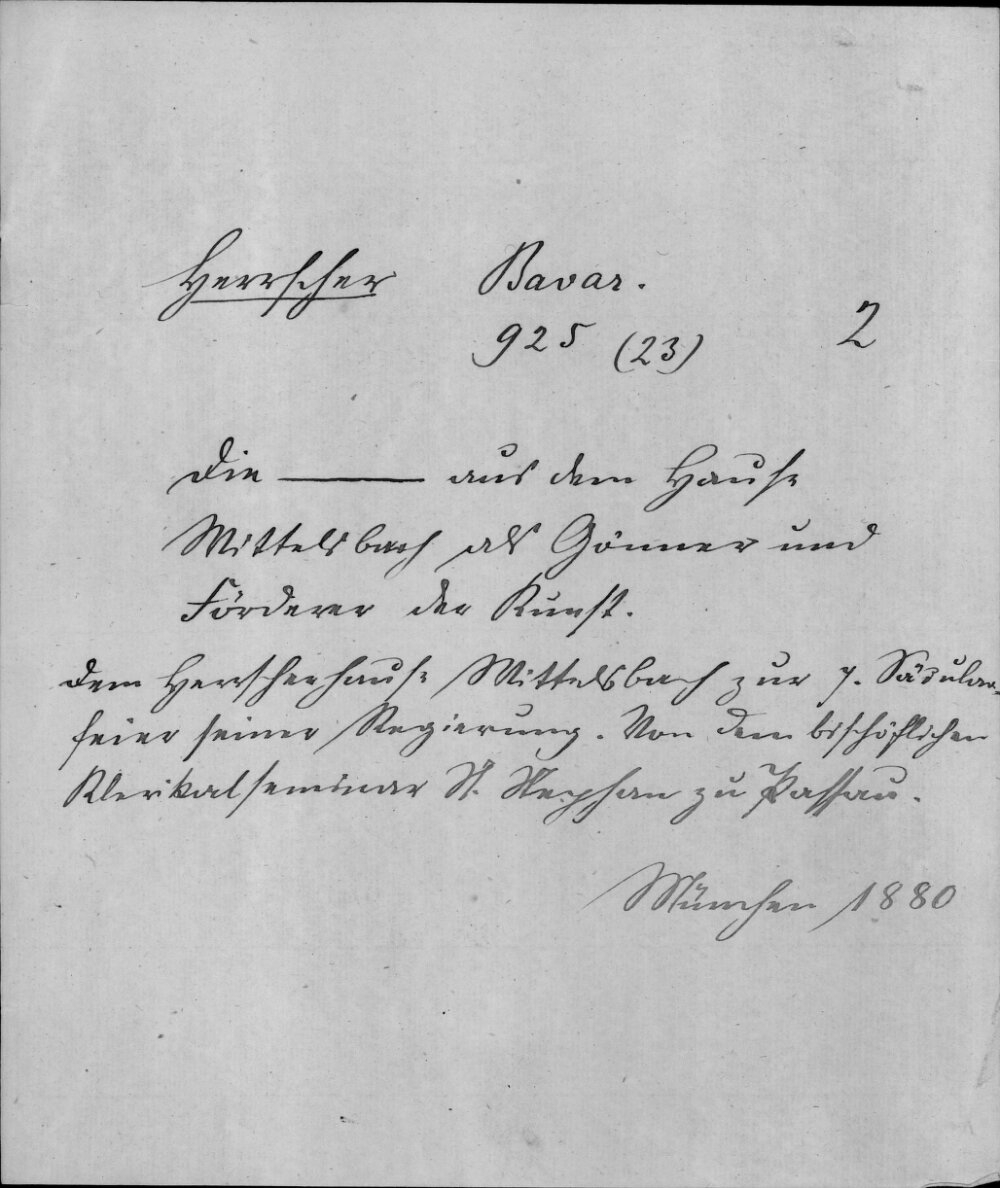 Herrscher Bavar.
925 (23) 2
Die ——— aus dem Hause
Wittelsbach als Gönner und
Förderer der Kunst.
Dem Herrscherhause Wittelsbach zur 7. Säcular-
feier seiner Regierung. Von dem bischöflichen
Klerikalseminar St. Stephan zu Passau.
München 1880